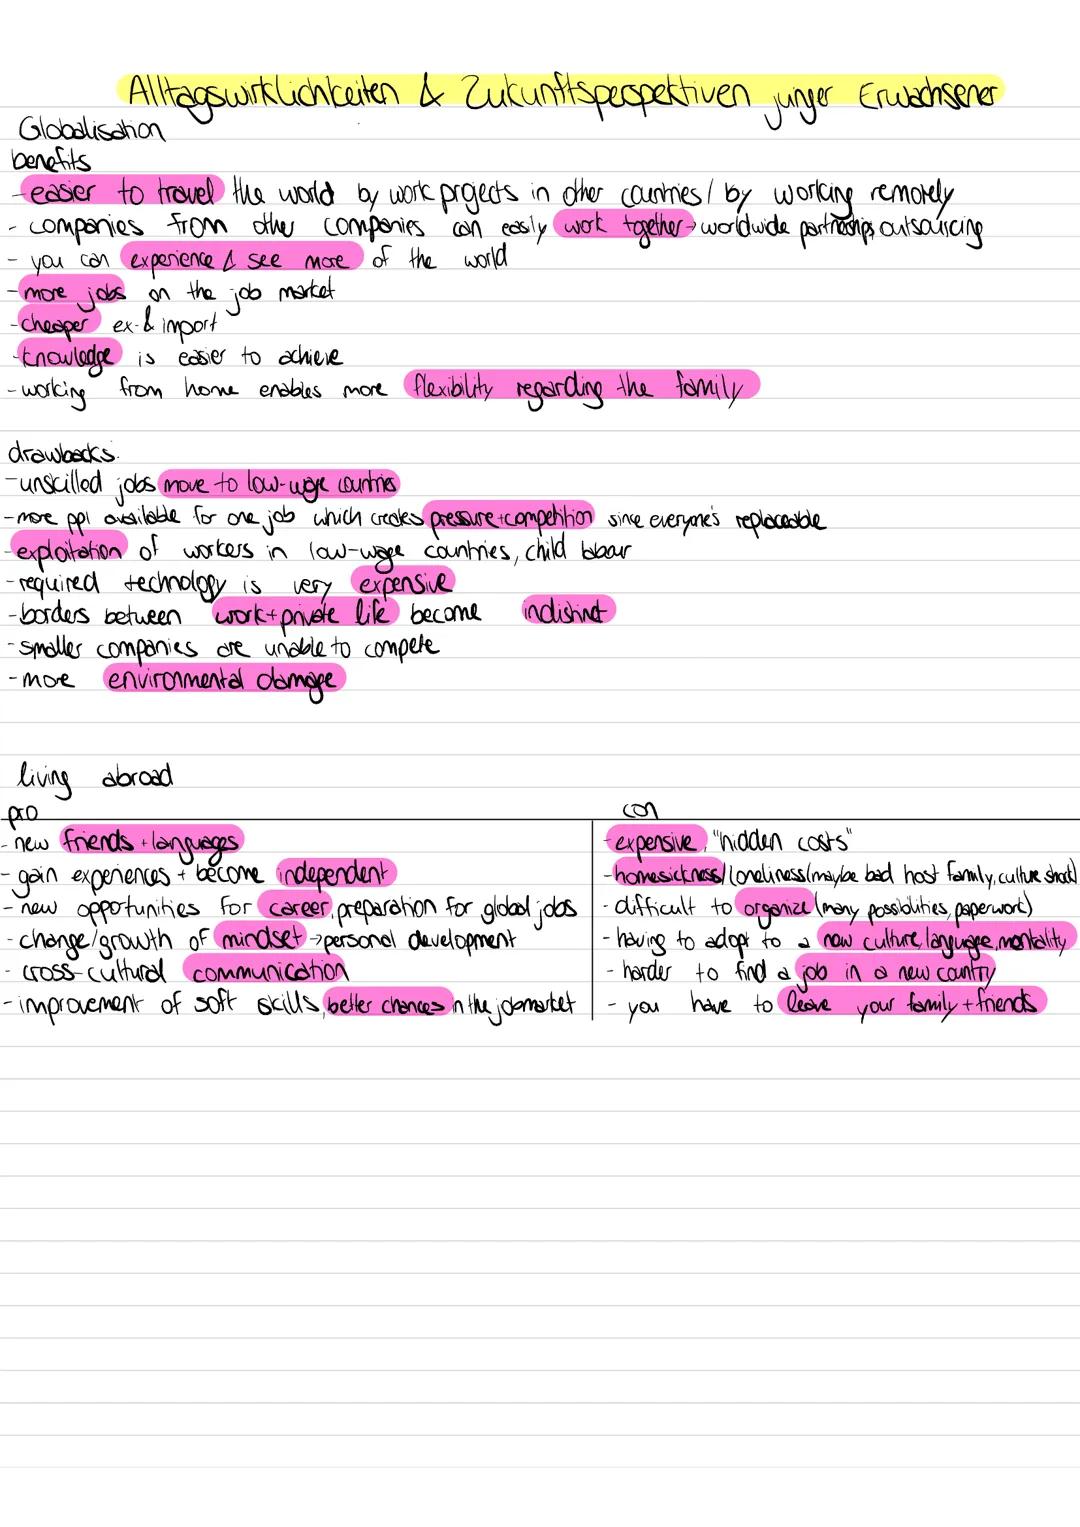 Alltagswirklichkeiten & Zukunftsperspektiven junger Erwachsener
Globalisation
benefits
- easier to travel the world by work projects in other countries / by working remotely
- companies from other companies can easily work together → worldwide partnerships, outsourcing
- you can experience & see more of the world
- more jobs on the job market
- cheaper ex- & import
- knowledge is easier to achieve
- working from home enables more flexibility regarding the family
drawbacks:
- unskilled jobs move to low-wage countries
- more ppl available for one job which creates pressure + competition since everyone's replaceable
- exploitation of workers in low-wage countries, child labour
- required technology is very expensive
- borders between work + private life become indistinct
- smaller companies are unable to compete
- more environmental damage
living abroad
pro
- new friends + languages
- gain experiences + become independent
- new opportunities for career, preparation for global jobs
- change/growth of mindset → personal development
- cross-cultural communication
- improvement of soft skills, better chances in the jobmarket
con
- expensive, "hidden costs"
- homesickness/loneliness (maybe bad host family, culture shock)
- difficult to organize (many possibilities, paperwork)
- having to adapt to a new culture, language, mentality
- harder to find a job in a new country
- you have to leave your family + friends